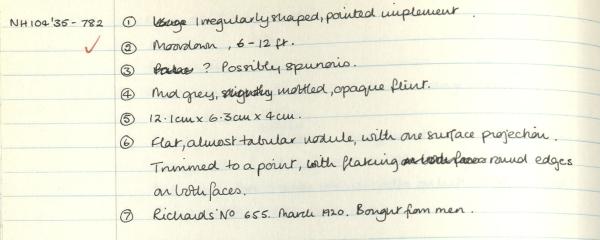 NH104'35-782 ① Irregularly shaped, pointed implement.
② Moordown, 6-12 ft.
③ ? Possibly spurious.
④ Mid grey, slightly mottled, opaque flint.
⑤ 12.1cm x 6.3cm x 4cm.
⑥ Flat, almost tabular nodule, with one surface projection.
Trimmed to a point, with flaking on both faces round edges
on both faces.
⑦ Richards' No 655. March 1920. Bought from men.